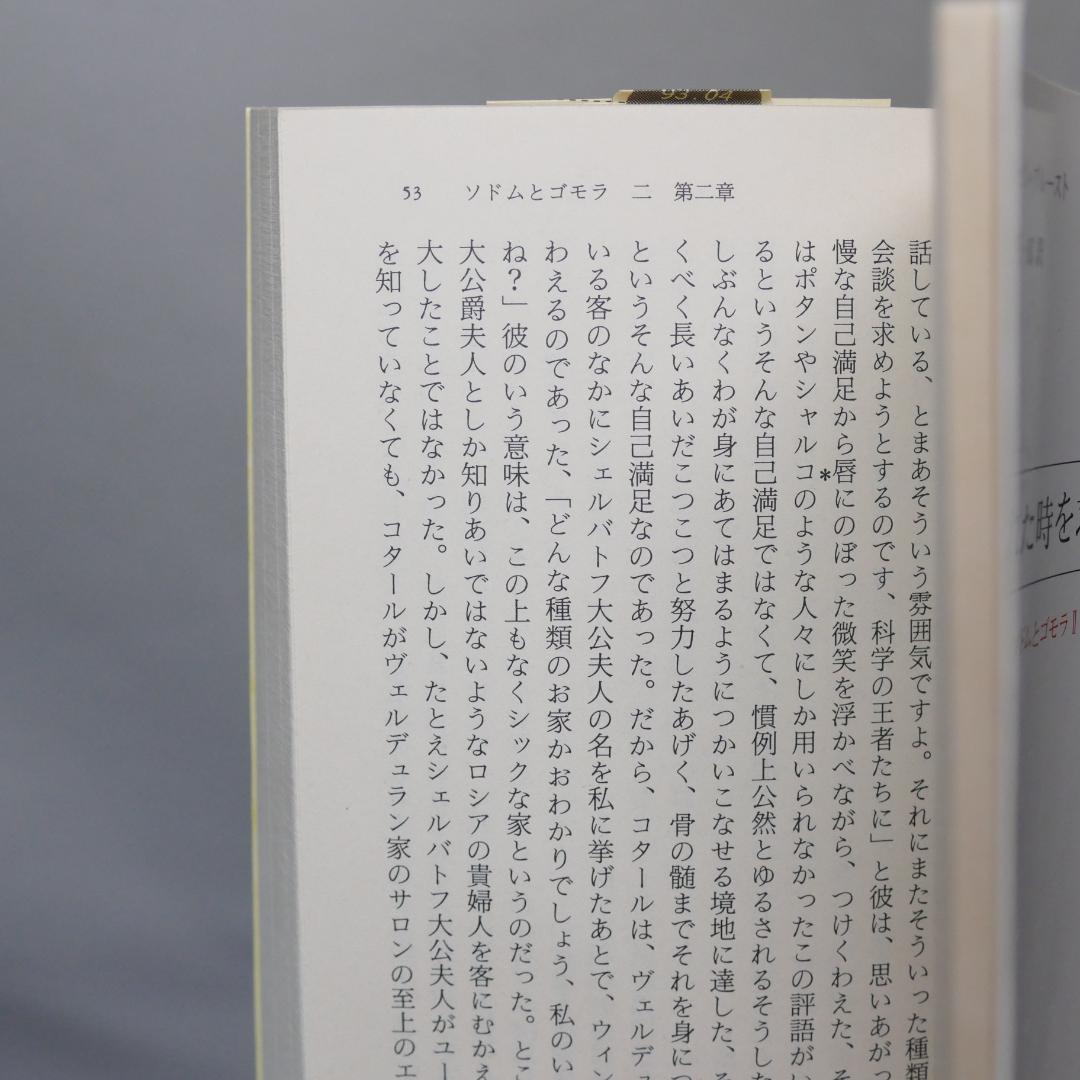 93.04
53　ソドムとゴモラ　二　第二章
話している、とまあそういう雰囲気ですよ。それにまたそういった種類
会談を求めようとするのです、科学の王者たちに」と彼は、思いあがっ
慢な自己満足から唇にのぼった微笑を浮かべながら、つけくわえた、そ
*
はポタンやシャルコのような人々にしか用いられなかったこの評語がい
るというそんな自己満足ではなくて、慣例上公然とゆるされるそうした
しぶんなくわが身にあてはまるようにつかいこなせる境地に達した、そ
くべく長いあいだこつこつと努力したあげく、骨の髄までそれを身につ
というそんな自己満足なのであった。だから、コタールは、ヴェルデュ
いる客のなかにシェルバトフ大公夫人の名を私に挙げたあとで、ウィン
わえるのであった、「どんな種類のお家かおわかりでしょう、私のい
ね？」彼のいう意味は、この上もなくシックな家というのだった。とこ
大公爵夫人としか知りあいではないようなロシアの貴婦人を客にむかえ
大したことではなかった。しかし、たとえシェルバトフ大公夫人がユー
を知っていなくても、コタールがヴェルデュラン家のサロンの至上のエ
た時を
ムとゴモラⅡ